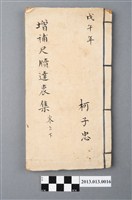 戊午年
增補尺牘達衷集
卷之下
柯子忠
2013.013.0016